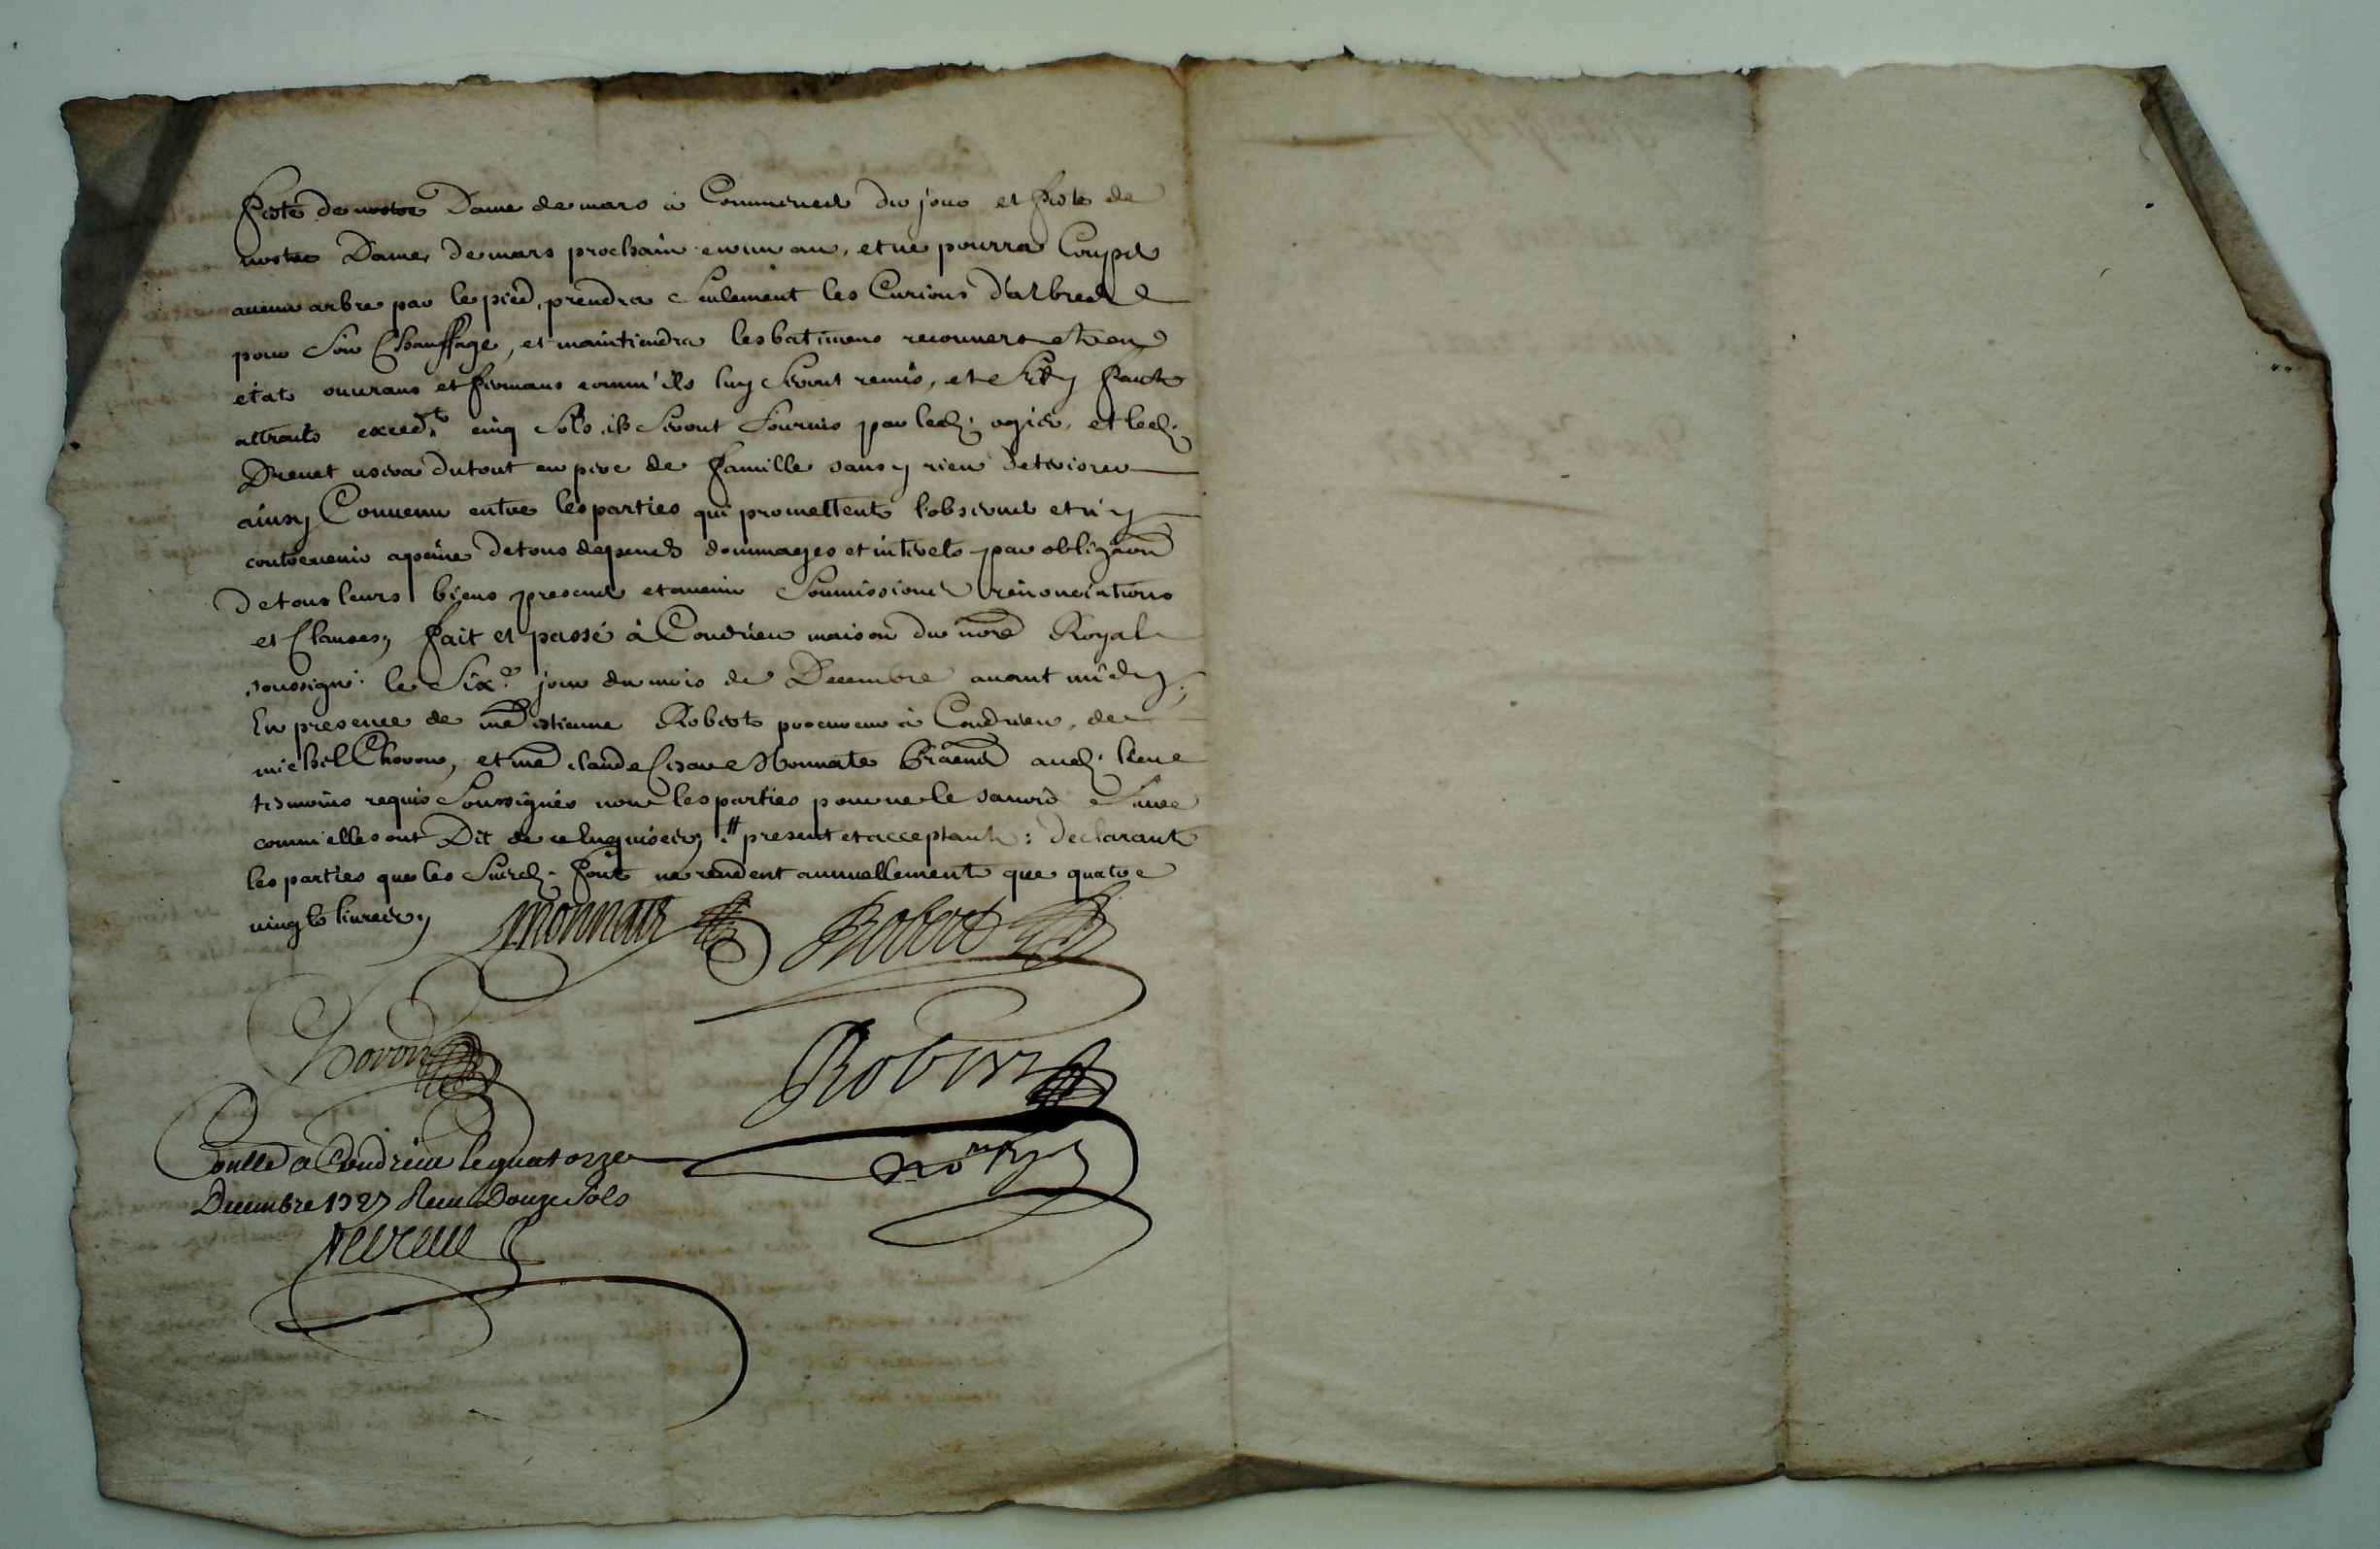 feste de nostre Dame de mars a Commencer du jour et feste de
nostre Dame de mars prochain en un an, et ne pourra Couper
aucun arbre par le pied, prendra Seulement les Curions d'arbres
pour Son Chauffage, et maintiendra les batimens recouverts et en
état ouvrans et fermans comm'ils luy Seront remis, et S'il y faut
attraits exced.t cinq Sols ils Seront fournis par led. ogier, et led.
Drevet usera du tout en pere de famille sans y rien deteriorer
ainsy Convenu entre les parties qui promettent l'observer et n'y
contrevenir a peine de tous depends dommages et interets par obligaon
de tous leurs biens presens et avenir Soumissions renonciations
et Clauses, fait et passé à Condrieu maison du nore Royal
soussigné le Six.e jour du mois de Decembre avant midy;
En presence de me etienne Robert procureur à Condrieu, de
michel Choron, et me claude Cesar Monnate praend aud. lieu
temoins requis Soussignés non les parties pour ne le savoir faire
comm'elles ont Dit de ce enquises, # present et acceptant : declarant
les parties que les Susd. font ne rendent annuellement que quatre
vingts livres,
Monnate Robert
Choron
Robert
nore Ry
Conllé a Condrieu le quatorze
Decembre 1727 Reçu Douze Sols